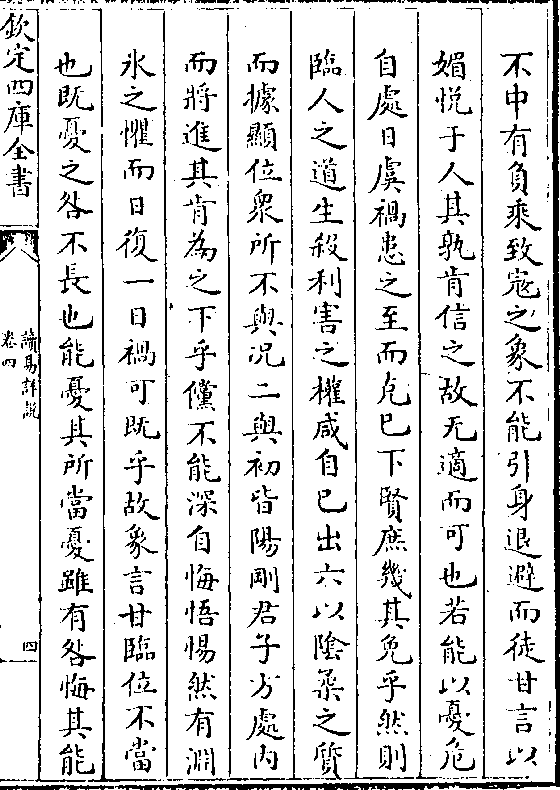 不中有負乘致寇之象不能引身退避而徒甘言以
媚悦于人其孰肯信之故无適而可也若能以憂危
自處日虞禍患之至而克已下賢庶幾其免乎然則
臨人之道生殺利害之權咸自已出六以陰柔之質
而據顯位衆所不與况二與初皆陽剛君子方處内
而將進其肯為之下乎儻不能深自悔悟惕然有淵
氷之懼而日復一日禍可既乎故象言甘臨位不當
也既憂之咎不長也能憂其所當憂雖有咎悔其能
欽定四庫全書
讀易詳説
卷四
四